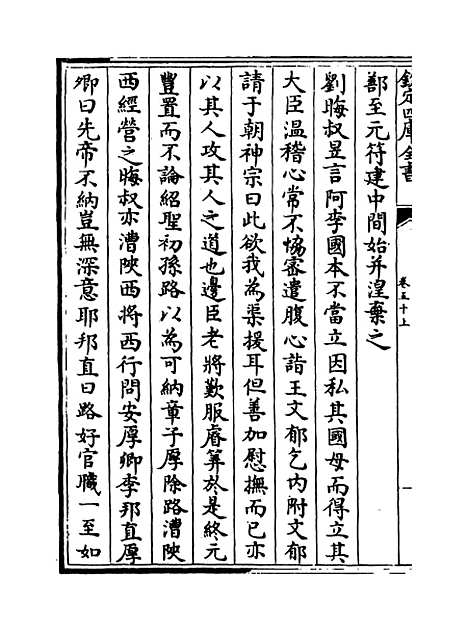 欽定四庫全書
卷五十上
鄯至元符建中間始并湟棄之
劉晦叔昱言阿李國本不當立因私其國母而得立其
大臣温稽心常不協審遣腹心詣王文郁乞内附文郁
請于朝神宗曰此欲我為渠援耳但善加慰撫而已亦
以其人攻其人之道也邊臣老將歎服睿筭於是終元
豐置而不論紹聖初孫路以為可納章子厚除路漕陜
西經營之晦叔亦漕陜西將西行問安厚卿李邦直厚
卿曰先帝不納豈無深意耶邦直曰路好官職一至如